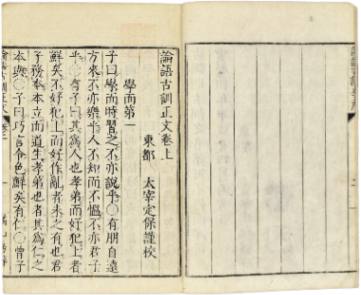 論語古訓正文卷上
東都　太宰定保謹校
學而第一
子曰學而時習之不亦說乎○有朋自遠
方來不亦樂乎人不知而不慍不亦君子
乎○有子曰其爲人也孝弟而好犯上者
鮮矣不好犯上而好作亂者未之有也君
子務本本立而道生孝弟也者其爲仁之
本與○子曰巧言令色鮮矣有仁○曾子